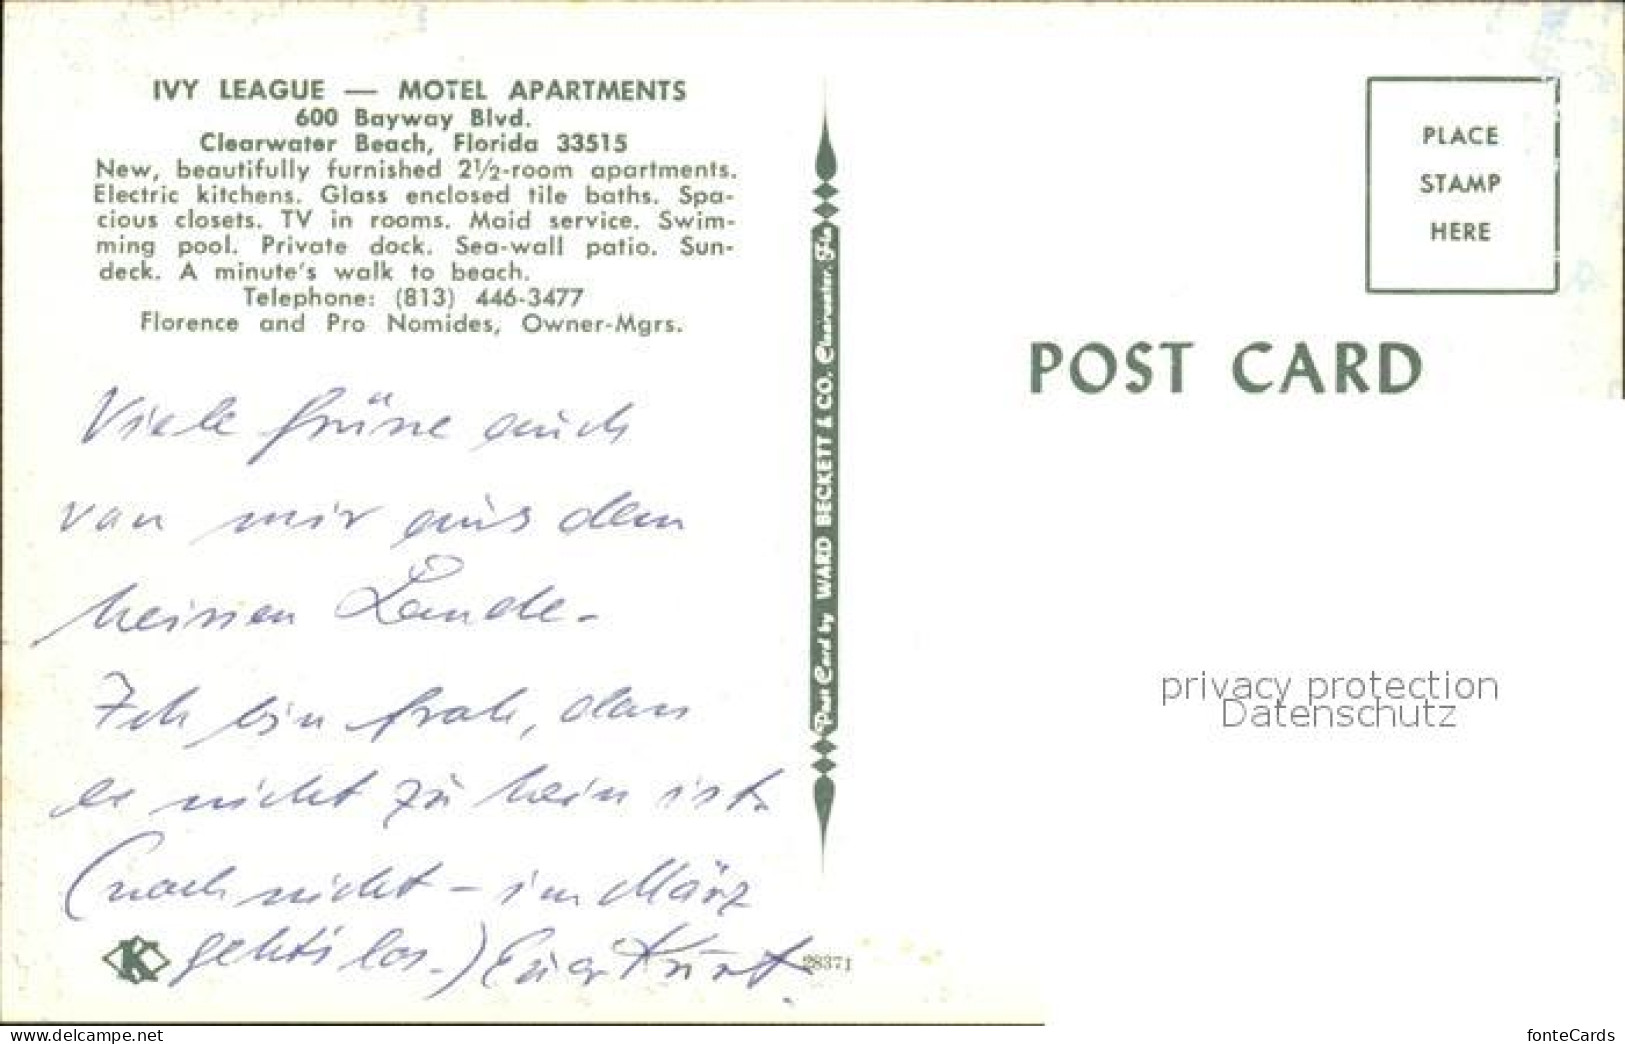 IVY LEAGUE — MOTEL APARTMENTS
600 Bayway Blvd.
Clearwater Beach, Florida 33515
New, beautifully furnished 2½-room apartments.
Electric kitchens. Glass enclosed tile baths. Spa-
cious closets. TV in rooms. Maid service. Swim-
ming pool. Private dock. Sea-wall patio. Sun-
deck. A minute's walk to beach.
Telephone: (813) 446-3477
Florence and Pro Nomides, Owner-Mgrs.
Viele Grüsse auch
von mir aus dem
heissen Lande.
Ich bin froh, dass
es nicht zu heiss ist.
(noch nicht – im März
geht's los.) Euer Kurt.
K
28371
Post Card by WARD BECKETT & CO. Clearwater, Fla.
PLACE
STAMP
HERE
POST CARD
privacy protection
Datenschutz
www.delcampe.net
fonteCards